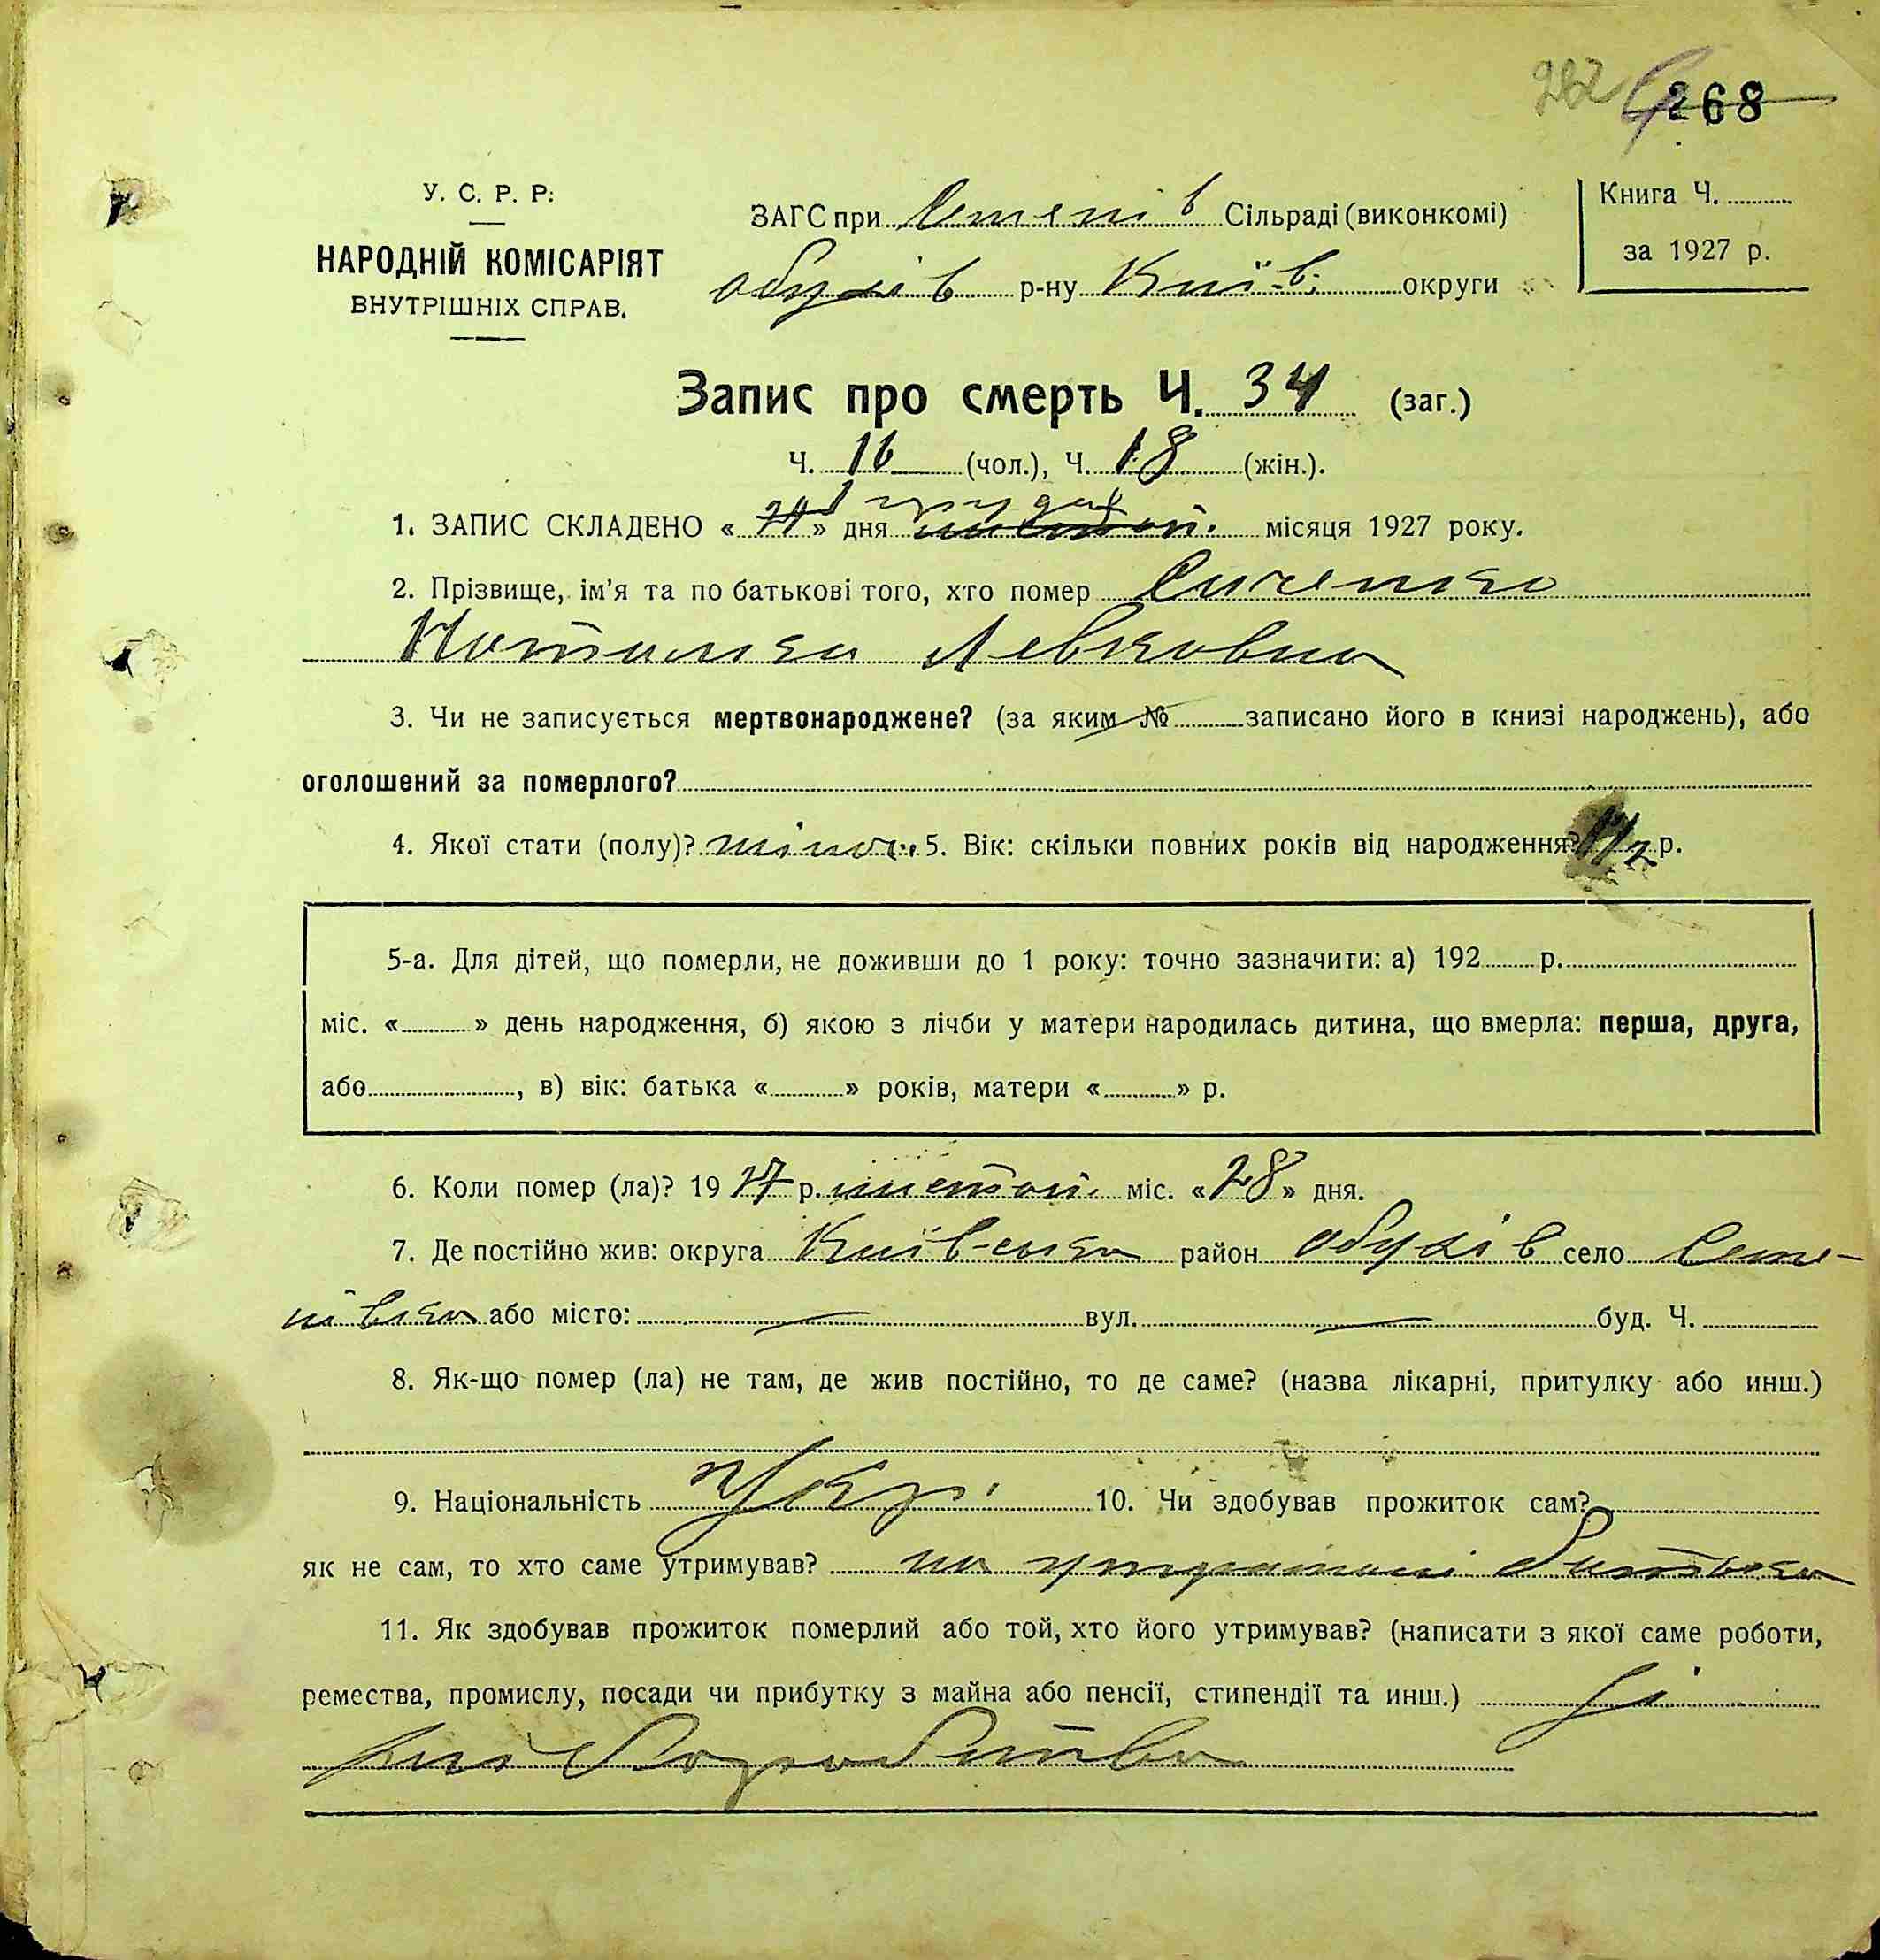 262 268
У. С. Р. Р.
НАРОДНІЙ КОМІСАРІЯТ
ВНУТРІШНІХ СПРАВ.
ЗАГС при Семенів Сільраді (виконкомі)
Обухів р-ну Київ. округи
Книга Ч.
за 1927 р.
Запис про смерть Ч. 34 (заг.)
Ч. 16 (чол.), Ч. 18 (жін.).
1. ЗАПИС СКЛАДЕНО « 1 » дня грудня місяця 1927 року.
2. Прізвище, ім'я та по батькові того, хто помер
Наталка Левковна
3. Чи не записується мертвонароджене? (за яким № записано його в книзі народжень), або
оголошений за померлого?
4. Якої статі (полу)? жіноч. 5. Вік: скільки повних років від народження? р.
5-а. Для дітей, що померли, не доживши до 1 року: точно зазначити: а) 192 р.
міс. « » день народження, б) якою з лічби у матери народилась дитина, що вмерла: перша, друга,
або , в) вік: батька « » років, матери « » р.
6. Коли помер (ла)? 1927 р. листоп. міс. «28» дня.
7. Де постійно жив: округа Київська район Обухів село Семе-
нівка або місто: — вул. — буд. Ч.
8. Як-що помер (ла) не там, де жив постійно, то де саме? (назва лікарні, притулку або инш.)
9. Національність Укр. 10. Чи здобував прожиток сам?
як не сам, то хто саме утримував? на утриманні батька
11. Як здобував прожиток померлий або той, хто його утримував? (написати з якої саме роботи,
ремества, промислу, посади чи прибутку з майна або пенсії, стипендії та инш.) Сі
льск. господарство